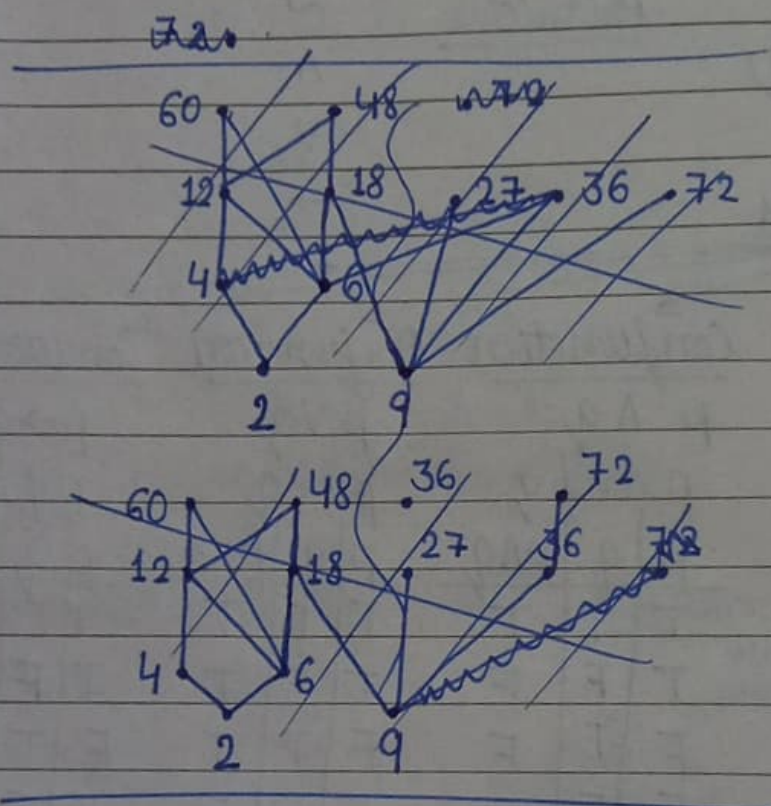 72.
60 48
12 18 27 36 72
4 6
2 9
60 48 36 72
12 18 27 36
4 6
2 9